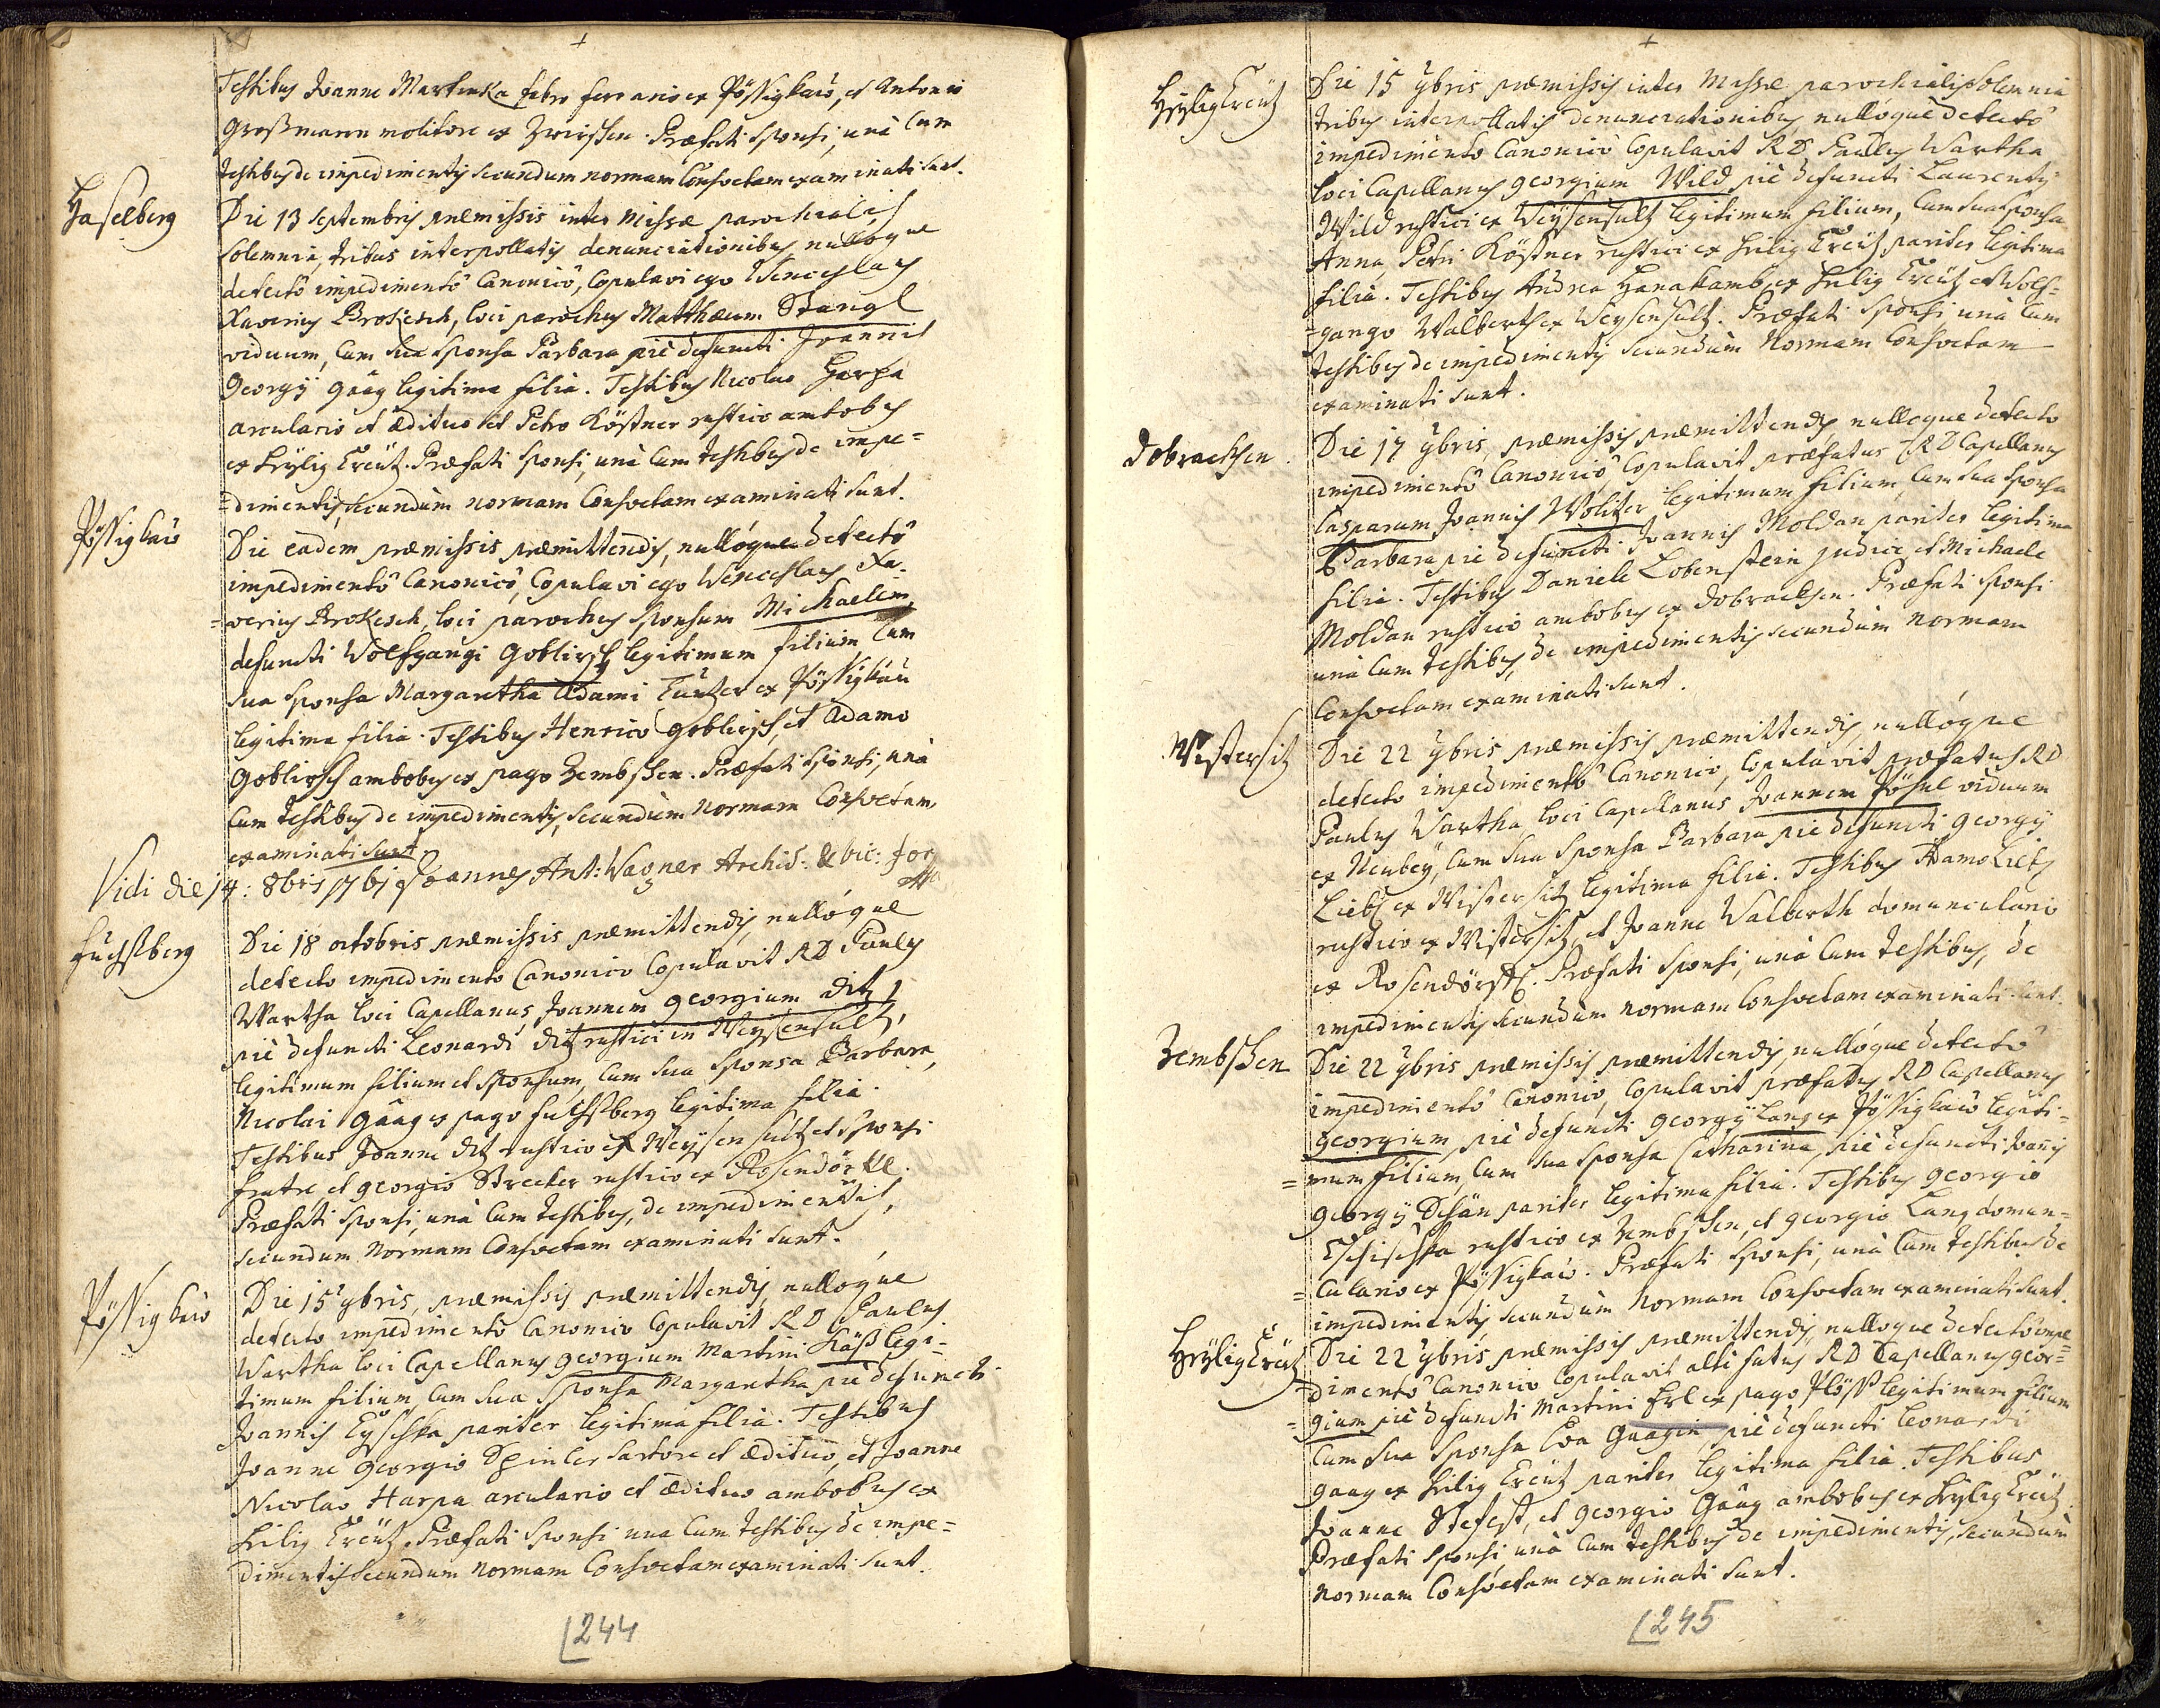 Testibus Joanne Martinka fabro ferrario ex Pössigkau, et Antonio
Großmann molitore ex Zwirschen. Præfati Sponsi, unà Cum
testibus de impedimentis secundum normam Consvetam examinati sunt.
Haselberg
Die 13 Septembris præmissis inter Missæ parochialis
Solemnia, tribus interpollatis denunciationibus, nullóque
detectô impedimentô Canonicô, Copulavi ego Wenceslaus
Xaverius Prokesch, loci parochus Matthæum Stangl
viduum, Cum sua Sponsa Barbara piè defuncti Joannis
Georgÿ Gäag legitima filia. Testibus Nicolao Harpa
arculario et ædituo et Petro Köstner rustico ambobus
ex Heÿlig Creütz. Præfati Sponsi, unà Cum testibus de impe=
=dimentis, secundùm normam Consvetam examinati sunt.
Pössigkau
Die eadem præmissis præmittendis, nullóque detectô
impedimentô Canonicô, Copulavi ego Wenceslaus Xa-
=verius Prokesch, loci parochus Sponsum Michaelem
defuncti Wolfgangi Goblirsch legitimum filium, Cum
sua Sponsa Margaretha Adami Tautzer ex Pössigkau
legitima filia. Testibus Henrico Goblirsch, et Adamo
Goblirsch ambobus ex pago Zembschen. Præfati Sponsi, unà
Cum testibus de impedimentis, secundùm Normam Consvetam
examinati sunt.
Vidi die 14: 8bris 1761 Joannes Ant: Wagner Archid: & vic: for
Fuchsberg
Die 18 octobris præmissis præmittendis, nullóque
detecto impedimento Canonico Copulavit RD Paulus
Wartha loci Capellanus, Joannem Georgium Ditz,
piè defuncti Leonardi Ditz rustici in Weÿsensultz,
legitimum filium et Sponsum, Cum sua Sponsa Barbara,
Nicolai Gäag ex pago Fuchsberg legitima filia.
Testibus Joanne Ditz rustico ex Weÿsensultz et Sponsi
fratre, et Georgio Strecker rustico ex Rosendörfl.
Præfati Sponsi, unà Cum testibus, de impedimentis,
secundum Normam Consvetam examinati sunt.
Pössigkau
Die 15 9bris, præmissis præmittendis, nullóque
detecto impedimento Canonico Copulavit RD Paulus
Wartha loci Capellanus Georgium Martini Käß legi=
timum filium, Cum sua Sponsa Margaretha piè defuncti
Joannis Tÿschka pariter legitima filia. Testibus
Joanne Georgio Spinler Sartore et ædituo, et Joanne
Nicolao Harpa arculario et ædituo ambobus ex
Heilig Creütz. Præfati Sponsi una Cum testibus de impe=
dimentis secundum Normam Consvetam examinati sunt.
244
HeÿligCreutz
Die 15 9bris præmissis inter Missæ parochialis Solemnia
tribus interpollatis denunciationibus, nullóque detectô
impedimento Canonico Copulavit RD Paulus Wartha
loci Capellanus Georgium Wild piè defuncti Laurentÿ
Wild rustici ex Weÿsensultz legitimum filium, Cum sua Sponsa
Anna, Petri Köstner rustici ex Heilig Creütz pariter legitima
filia. Testibus Andrea Hanakamb ex Heilig Creütz et Wolf=
=gango Walberth ex Weysensultz. Præfati Sponsi unà Cum
testibus de impedimentis secundùm Normam Consvetam
examinati sunt.
Dobraschen
Die 17 9bris, præmissis præmittendis, nullóque detecto
impedimentô Canonicô Copulavit præfatus RD Capellanus
Casparum Joannis Wolitzer legitimum filium, Cum sua Sponsa
Barbara pie defuncti Joannis Moldan pariter legitima
filia. Testibus Daniele Lobenstein Judice, et Michaele
Moldan rustico ambobus ex Dobraschen. Præfati Sponsi
unà Cum testibus, de impedimentis secundùm Normam
Consvetam examinati sunt.
Wistersitz
Die 22 9bris præmissis præmittendis, nullóque
detecto impedimentô Canonico, Copulavit præfatus RD
Paulus Wartha loci Capellanus Joannem Pösnl viduum
ex Neubeÿ, Cum sua Sponsa Barbara piè defuncti Georgÿ
Liebs ex Wistersitz legitima filia. Testibus Adamo Liebs
rustico ex Wistersitz, et Joanne Walberth domunculario
ex Rosendörffl. Præfati Sponsi, unà Cum testibus, de
impedimentis secundùm normam Consvetam examinati sunt.
Zembschen
Die 22 9bris præmissis præmittendis, nullóque detectô
impedimentô Canonico, Copulavit præfatus RD Capellanus
Georgium, piè defuncti Georgÿ Lang ex Pössigkau legiti=
=mum filium, Cum sua Sponsa Catharina, piè defuncti Joannis
Georgÿ Desän pariter legitima filia. Testibus Georgio
Tschischka rustico ex Zembschen, et Georgio Lang domun=
=culario ex Pössigkau. Præfati Sponsi, unà Cum testibus de
impedimentis secundùm Normam Consvetam examinati sunt.
HeÿligCreutz
Die 22 9bris præmissis præmittendis, nullóque detectô impe=
=dimentô Canonico Copulavit altè fatus RD Capellanus Geor=
=gium piè defuncti Martini Erl ex pago Plöss legitimum filium
Cum sua Sponsa Eva Gäagin, piè defuncti Leonardi
Gäag ex Heilig Creütz pariter legitima filia. Testibus
Joanne Stefest, et Georgio Gäag ambobus ex Heÿlig Creütz.
Præfati Sponsi, unà Cum testibus de impedimentis, secundùm
normam Consvetam examinati sunt.
245